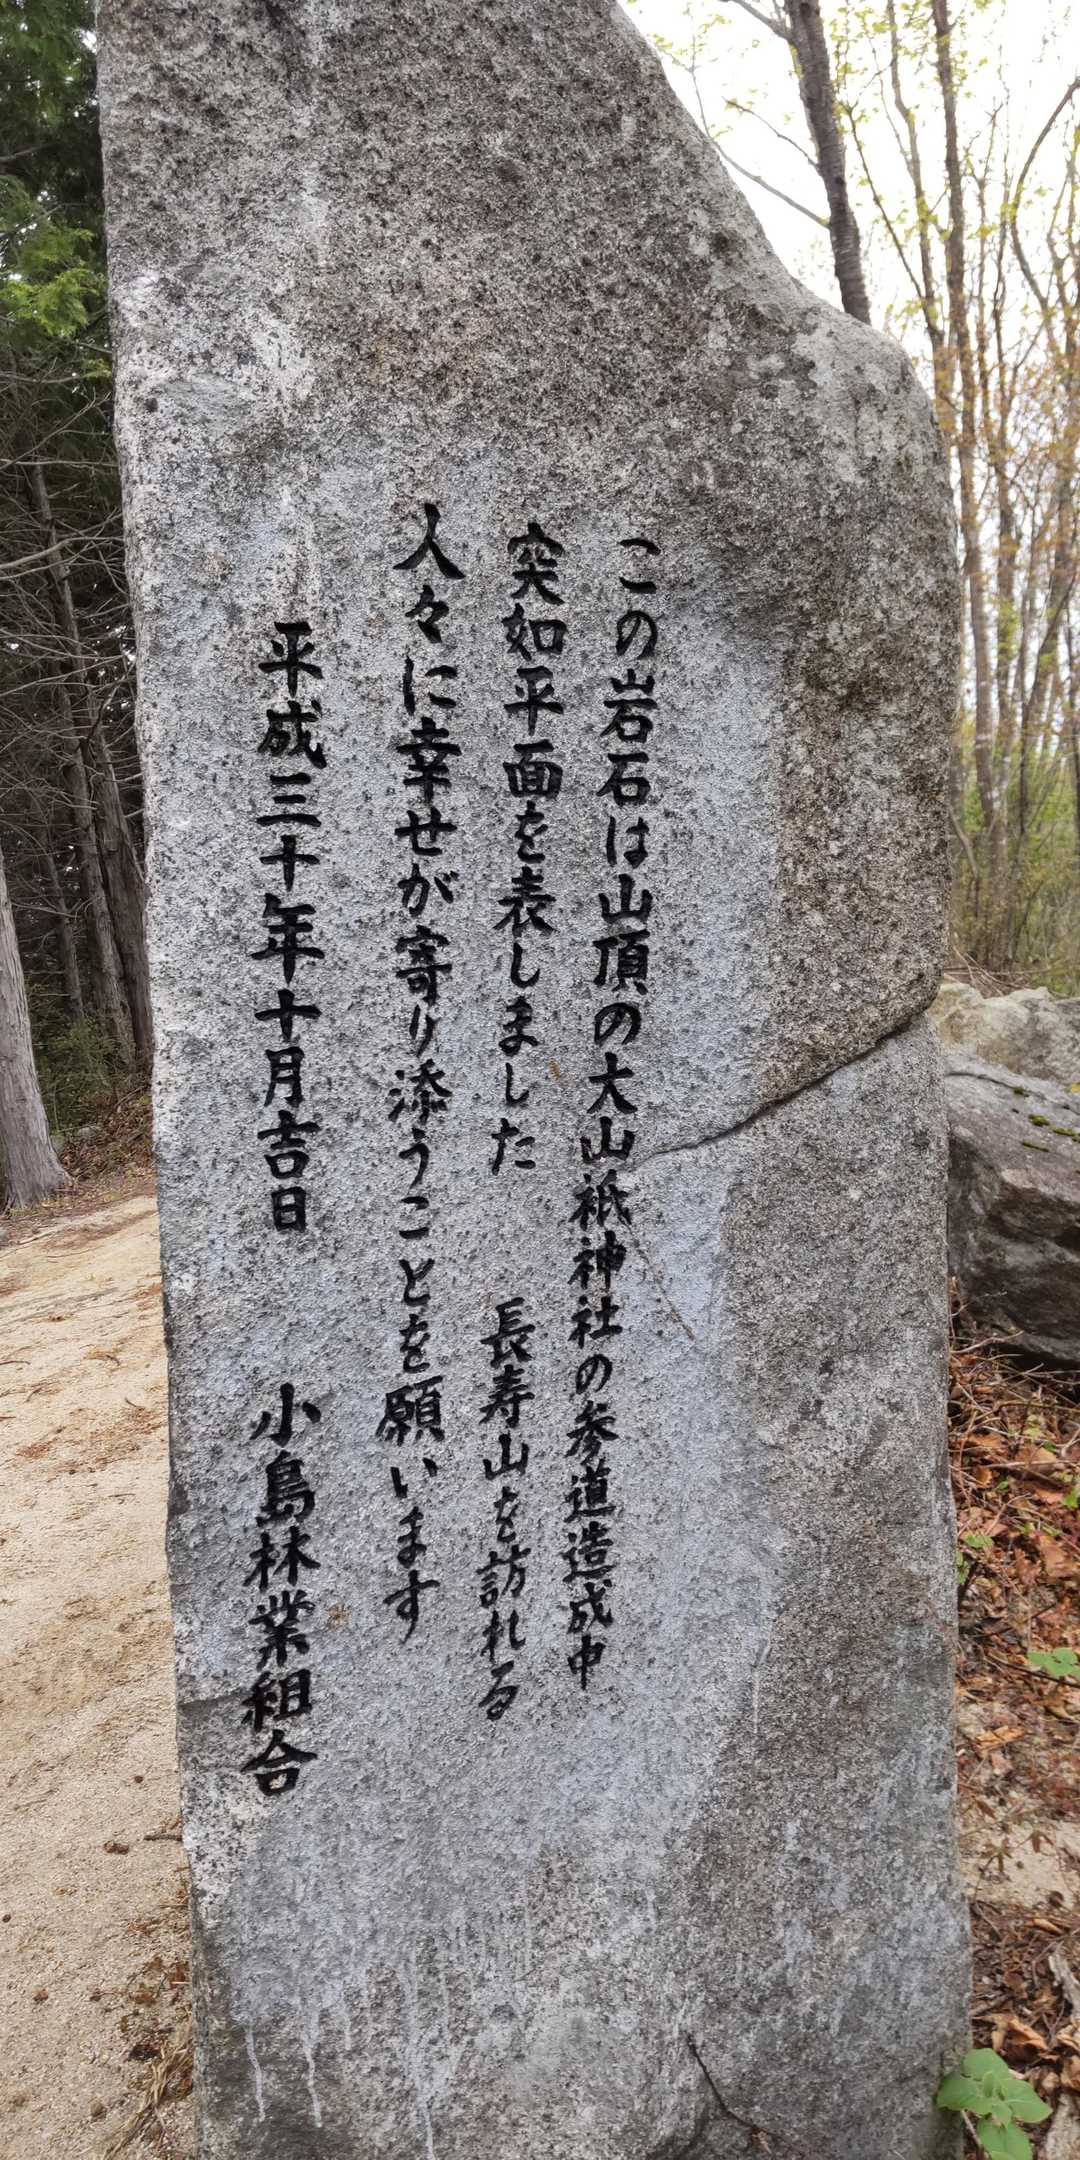 この岩石は山頂の大山祇神社の参道造成中
突如平面を表しました　長寿山を訪れる
人々に幸せが寄り添うことを願います
平成三十年十月吉日　小島林業組合